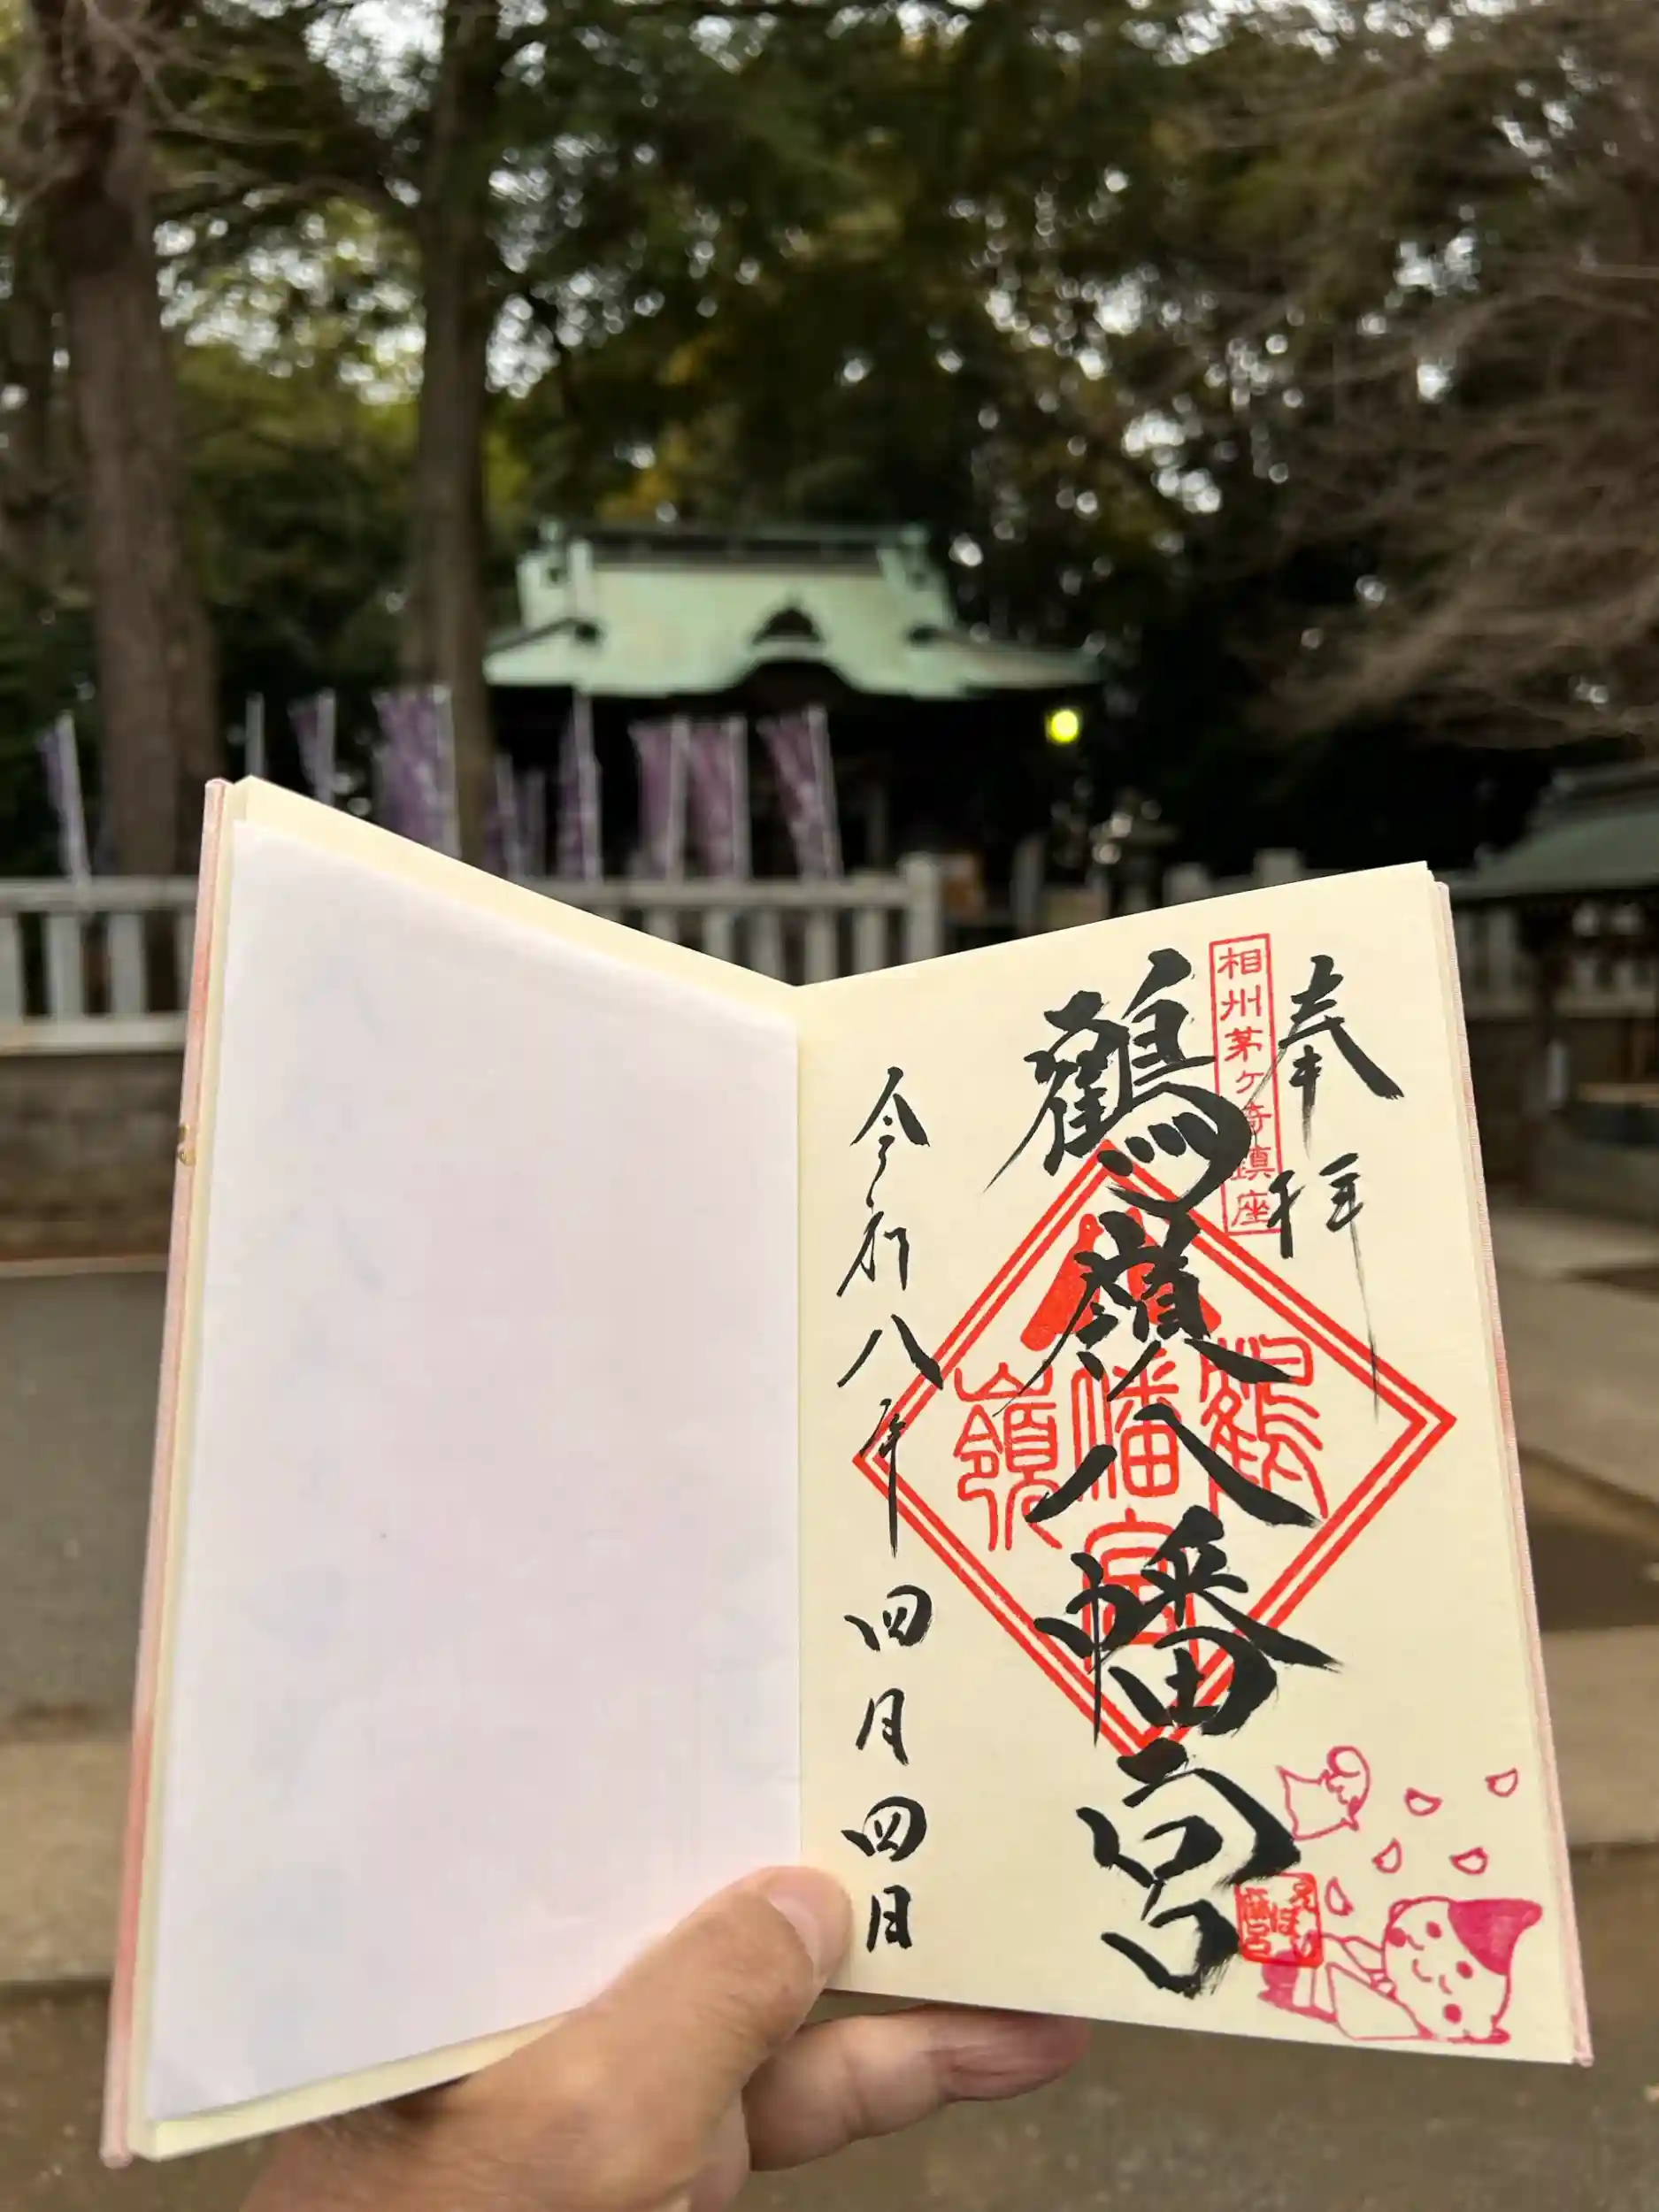 奉拝
相州茅ヶ崎鎮座
鶴嶺八幡宮
鶴嶺
八幡宮
令和八年四月四日